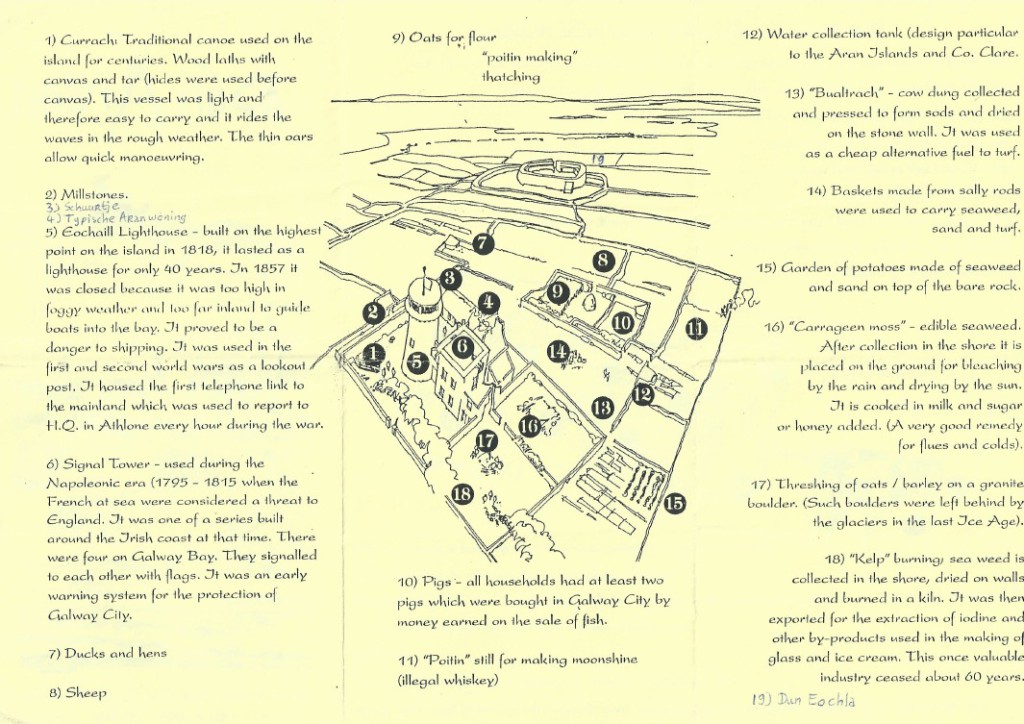 1) Currach: Traditional canoe used on the
island for centuries. Wood laths with
canvas and tar (hides were used before
canvas). This vessel was light and
therefore easy to carry and it rides the
waves in the rough weather. The thin oars
allow quick manoeuvring.
2) Millstones.
3) Schuurtje
4) Typische Aran woning
5) Eochaill Lighthouse - built on the highest
point on the island in 1818, it lasted as a
lighthouse for only 40 years. In 1857 it
was closed because it was too high in
foggy weather and too far inland to guide
boats into the bay. It proved to be a
danger to shipping. It was used in the
first and second world wars as a lookout
post. It housed the first telephone link to
the mainland which was used to report to
H.Q. in Athlone every hour during the war.
6) Signal Tower - used during the
Napoleonic era (1795 - 1815 when the
French at sea were considered a threat to
England. It was one of a series built
around the Irish coast at that time. There
were four on Galway Bay. They signalled
to each other with flags. It was an early
warning system for the protection of
Galway City.
7) Ducks and hens
8) Sheep
9) Oats for flour
"poitin making"
thatching
19
7
8
3
9
4
2
10
11
6
1
5
14
12
13
16
17
18
15
10) Pigs - all households had at least two
pigs which were bought in Galway City by
money earned on the sale of fish.
11) "Poitin" still for making moonshine
(illegal whiskey)
12) Water collection tank (design particular
to the Aran Islands and Co. Clare.
13) "Bualtrach" - cow dung collected
and pressed to form sods and dried
on the stone wall. It was used
as a cheap alternative fuel to turf.
14) Baskets made from sally rods
were used to carry seaweed,
sand and turf.
15) Garden of potatoes made of seaweed
and sand on top of the bare rock.
16) "Carrageen moss" - edible seaweed.
After collection in the shore it is
placed on the ground for bleaching
by the rain and drying by the sun.
It is cooked in milk and sugar
or honey added. (A very good remedy
for flues and colds).
17) Threshing of oats / barley on a granite
boulder. (Such boulders were left behind by
the glaciers in the last Ice Age).
18) "Kelp" burning; sea weed is
collected in the shore, dried on walls
and burned in a kiln. It was then
exported for the extraction of iodine and
other by-products used in the making of
glass and ice cream. This once valuable
industry ceased about 60 years.
19) Dun Eochla